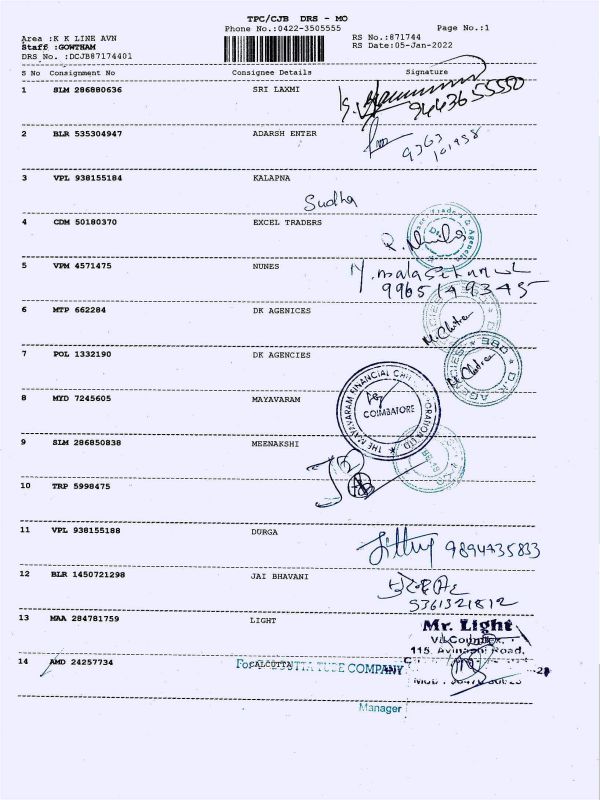 TPC/CJB DRS - MO
Phone No.:0422-3505555 Page No.:1
Area :K K LINE AVN RS No.:871744
Staff :GOWTHAM RS Date:05-Jan-2022
DRS No. :DCJB87174401
S No Consignment No Consignee Details Signature
1 SLM 286880636 SRI LAXMI
9443655550
2 BLR 535304947 ADARSH ENTER
9363
101938
3 VPL 938155184 KALAPNA
Sudha
4 CDM 50180370 EXCEL TRADERS
5 VPM 4571475 NUNES
9965149345
6 MTP 662284 DK AGENICES
M. Chitra
7 POL 1332190 DK AGENCIES
M. Chitra
D.K AGENCIES
8 MYD 7245605 MAYAVARAM
THE MAYAVARAM FINANCIAL CORPORATION LTD
COIMBATORE
9 SLM 286850838 MEENAKSHI
10 TRP 5998475
11 VPL 938155188 DURGA
9894735833
12 BLR 1450721298 JAI BHAVANI
5361321812
13 MAA 284781759 LIGHT
Mr. Light
115, Road,
14 AMD 24257734 CALCUTTA
For TUBE COMPANY
Manager